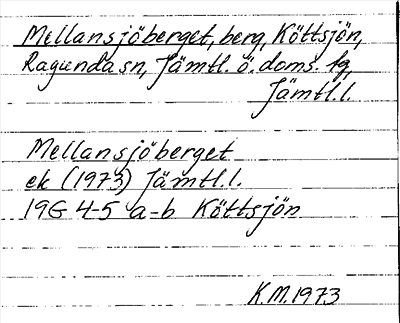 Mellansjöberget, berg, Köttsjön,
Ragunda sn, Jämtl. ö. doms. fq,
Jämtl.l.
Mellansjöberget
ek (1973) Jämtl.l.
19G 4-5 a-b Köttsjön
K.M.1973